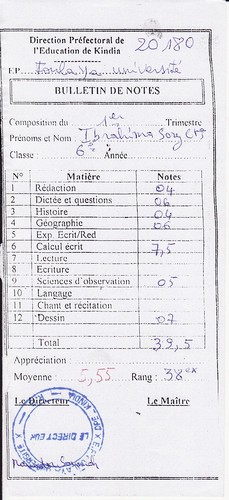 Direction Préfectoral de
l'Education de Kindia
20180
EP... université
BULLETIN DE NOTES
Composition du 1er Trimestre
Prénoms et Nom Ibrahima Sory
Classe 6è Année
N° Matière Notes
1 Rédaction 04
2 Dictée et questions 06
3 Histoire 04
4 Géographie 06
5 Exp. Ecrit/Red
6 Calcul écrit 7,5
7 Lecture
8 Ecriture
9 Sciences d'observation 05
10 Langage
11 Chant et récitation
12 Dessin 07
Total 39,5
Appréciation
Moyenne : 5,55 Rang : 38ex
Le Directeur Le Maître
LE DIRECTEUR